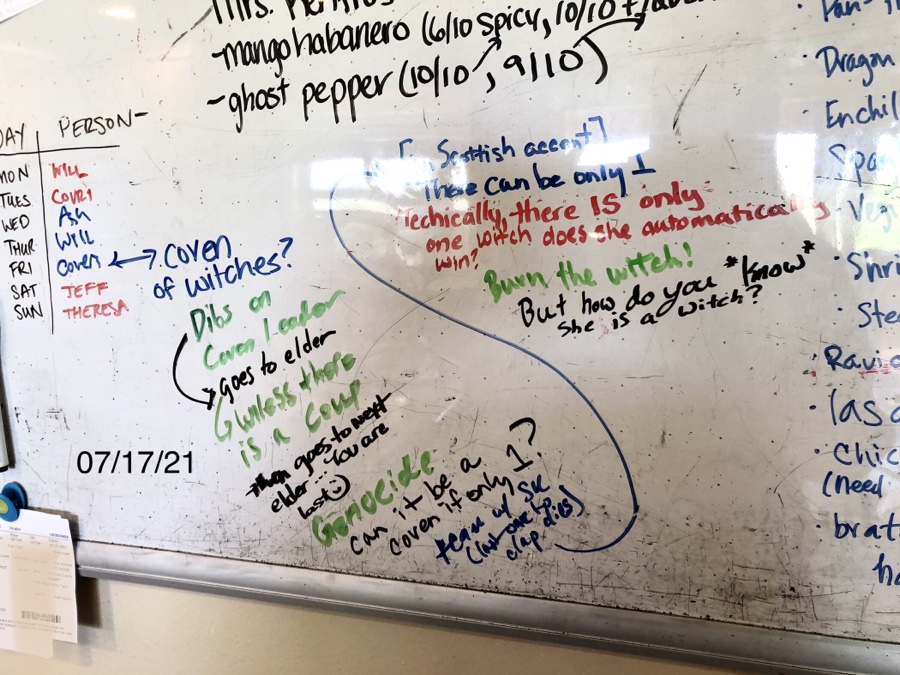 Mrs.
-mango habanero (6/10 spicy, 10/10
-ghost pepper (10/10, 9/10)
DAY PERSON-
MON WILL
TUES COURI
WED Ash
THUR Will
FRI Coven
SAT JEFF
SUN THERESA
coven
of witches?
Dibs on
Coven Leader
goes to elder
Gunless there
is a coup
then goes to next
elder... You are
last
Genocide
can it be a
coven if only 1?
team w/ SK
(last one to
clap dies)
Scottish accent]
There can be only 1
Techically, there IS only
one witch does she automatically
win?
Burn the witch!
But how do you *know*
she is a witch?
Pan-
Dragon
Enchil
Spag
Veg
Shri
Ste
Ravio
las
Chic
(need
brat
ha
07/17/21